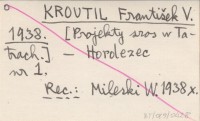 KROUTIL František V.
1938. [Projekty szos w Ta-
trach.] — Hordezec
nr 1.
Rec.: Mileski W. 1938 x.